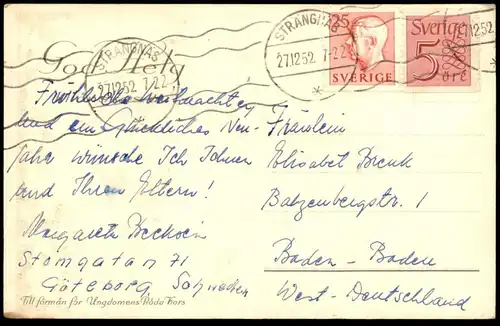 God Helg
STRÄNGNÄS
27.12.52
25
SVERIGE
Sverige
5
öre
STRÄNGNÄS
27.12.52
Fröhliche Weihnachten
und ein Glückliches Neu-
jahr wünsche Ich Ihnen
und Ihren Eltern!
Margareta
Stomgatan 71
Göteborg Schweden
Till förmån för Ungdomens Röda Kors
Fräulein
Elisabet Brenk
Batzenbergstr. 1
Baden-Baden
West-Deutschland